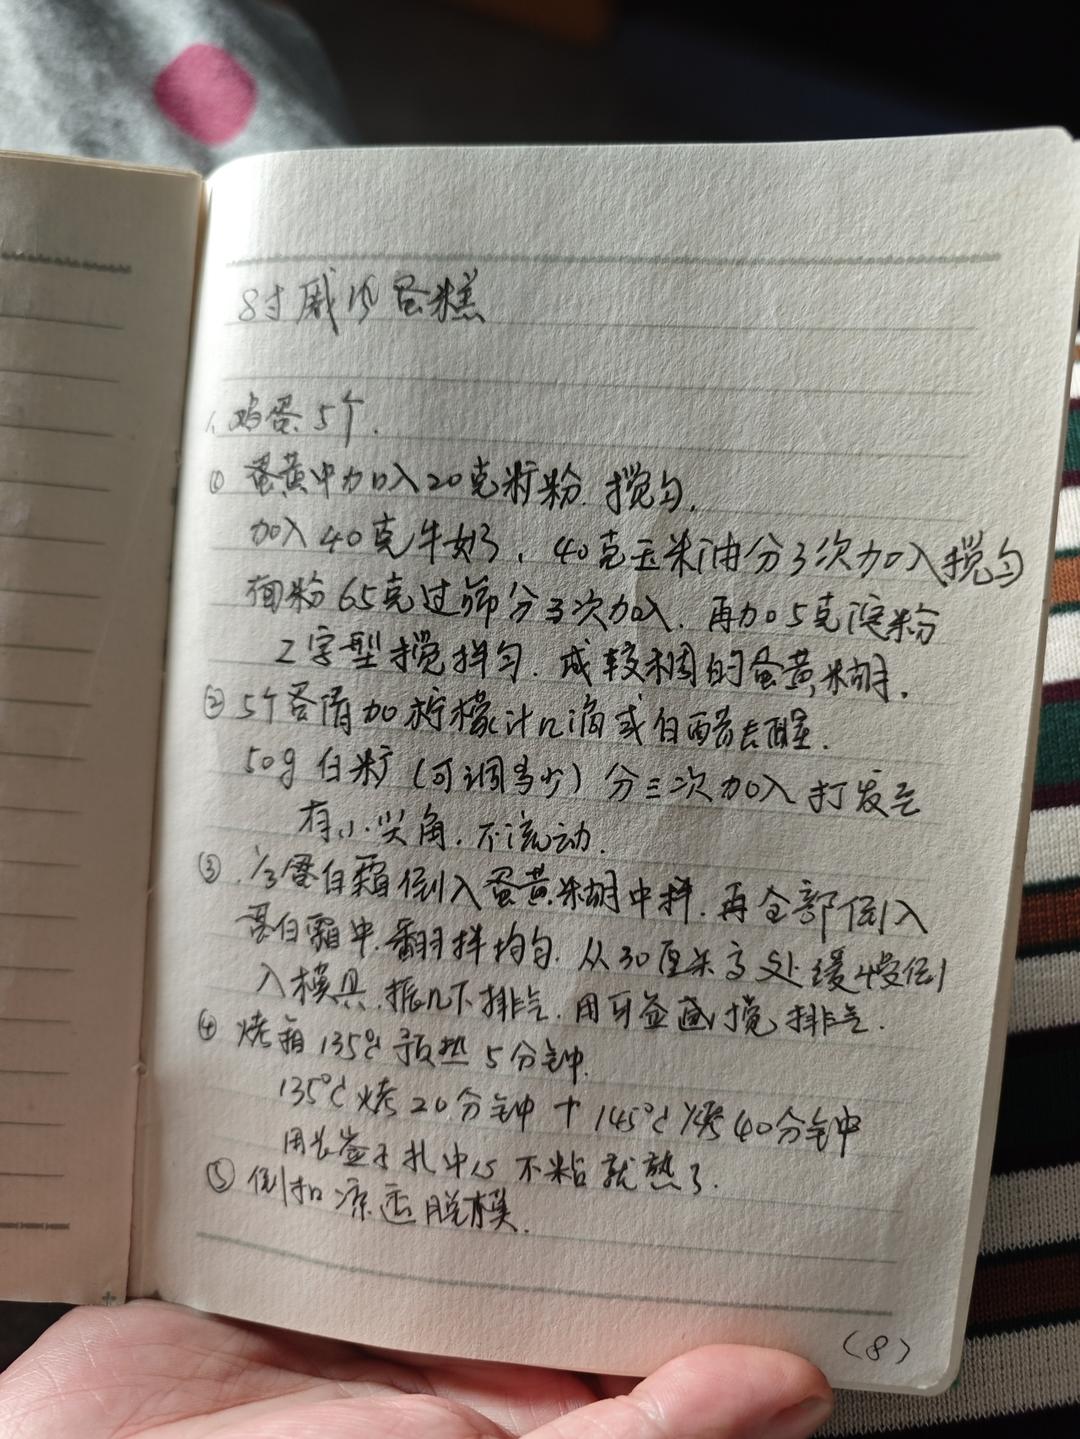 8寸戚风蛋糕
1、鸡蛋5个.
① 蛋黄中加入20克籵粉.搅匀.
加入40克牛奶,40克玉米油分3次加入搅匀
面粉65克过筛分3次加入.再加5克淀粉
Z字型搅拌匀.成较稠的蛋黄糊.
② 5个蛋清加柠檬汁几滴或白醋去腥.
50g白籵(可调多少)分三次加入打发至
有小尖角.不流动.
③ 1/3蛋白霜倒入蛋黄糊中拌.再全部倒入
蛋白霜中.翻拌均匀.从30厘米高处缓慢倒
入模具.振几下排气.用牙签划搅排气.
④ 烤箱135℃预热5分钟.
135℃烤20分钟+145℃烤40分钟
用长签子扎中心不粘就熟了.
⑤ 倒扣凉透脱模.
(8)